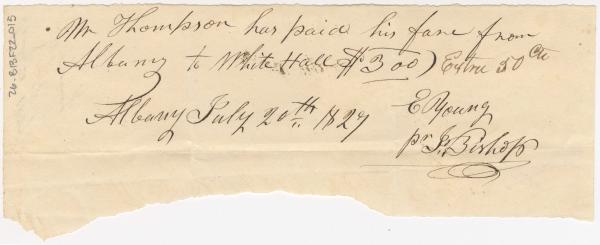 Mr Thompson has paid his fare from
Albany to White Hall $3 00) Extra 50 Cts
Albany July 20th 1827
E Young
pr J. Bishop